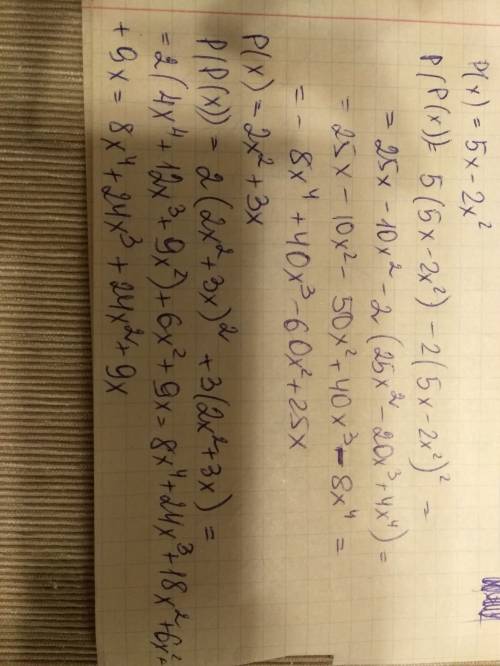 P(x) = 5x - 2x²
P(P(x)) = 5(5x - 2x²) - 2(5x - 2x²)² =
= 25x - 10x² - 2(25x² - 20x³ + 4x⁴) =
= 25x - 10x² - 50x² + 40x³ - 8x⁴ =
= - 8x⁴ + 40x³ - 60x² + 25x
P(x) = 2x² + 3x
P(P(x)) = 2(2x² + 3x)² + 3(2x² + 3x) =
= 2(4x⁴ + 12x³ + 9x²) + 6x² + 9x = 8x⁴ + 24x³ + 18x² + 6x² +
+ 9x = 8x⁴ + 24x³ + 24x² + 9x